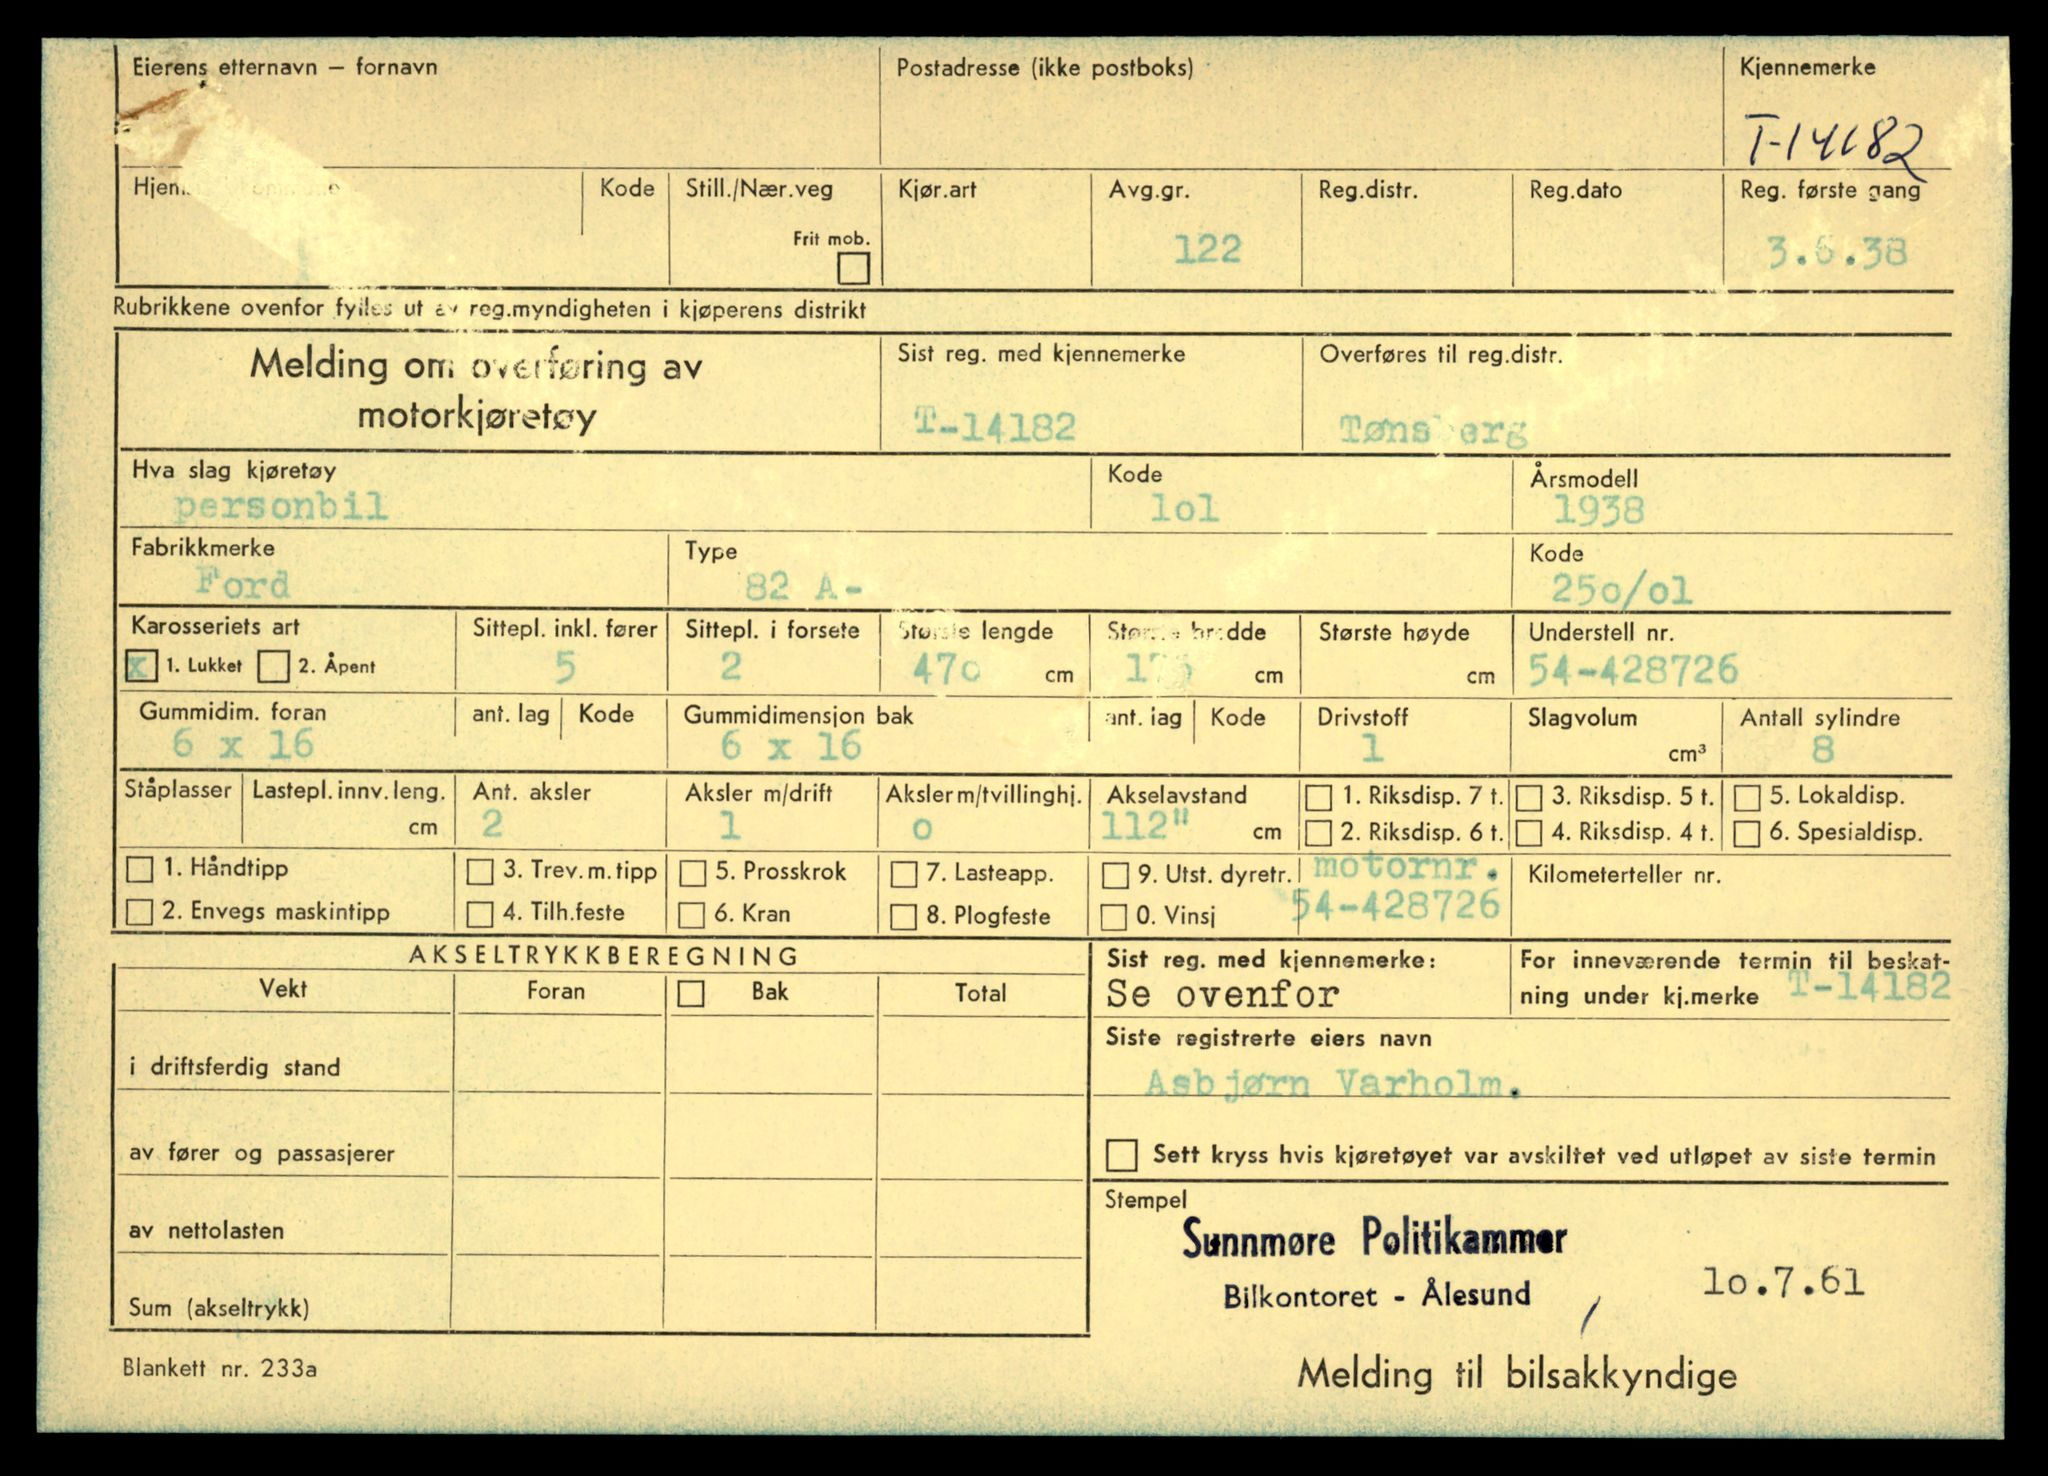 Eierens etternavn – fornavn Postadresse (ikke postboks) Kjennemerke
T-14182
Kode Still./Nær.veg Kjør.art Avg.gr. Reg.distr. Reg.dato Reg. første gang
Frit mob. 122
Rubrikkene ovenfor fylles ut av reg.myndigheten i kjøperens distrikt
Melding om overføring av motorkjøretøy
Sist reg. med kjennemerke Overføres til reg.distr.
T-14182 Tønsberg
Hva slag kjøretøy Kode Årsmodell
personbil lol 1938
Fabrikkmerke Type Kode
Ford 82 A- 25o/ol
Karosseriets art Sittepl. inkl. fører Sittepl. i forsete Største lengde Største bredde Største høyde Understell nr.
x 1. Lukket 2. Åpent 5 2 47o cm cm cm 54-428726
Gummidim. foran ant. lag Kode Gummidimensjon bak ant. lag Kode Drivstoff Slagvolum Antall sylindre
6 x 16 6 x 16 1 cm³ 8
Ståplasser Lastepl. innv. leng. Ant. aksler Aksler m/drift Aksler m/tvillinghj. Akselavstand 1. Riksdisp. 7 t. 3. Riksdisp. 5 t. 5. Lokaldisp.
cm 2 1 o 112" cm 2. Riksdisp. 6 t. 4. Riksdisp. 4 t. 6. Spesialdisp.
1. Håndtipp 3. Trev. m. tipp 5. Prosskrok 7. Lasteapp. 9. Utst. dyretr. motornr. Kilometerteller nr.
2. Envegs maskintipp 4. Tilh.feste 6. Kran 8. Plogfeste 0. Vinsj 54-428726
AKSELTRYKKBEREGNING
Vekt Foran Bak Total
i driftsferdig stand
av fører og passasjerer
av nettolasten
Sum (akseltrykk)
Sist reg. med kjennemerke: For inneværende termin til beskat-
Se ovenfor ning under kj.merke T-14182
Siste registrerte eiers navn
Asbjørn Varholm.
Sett kryss hvis kjøretøyet var avskiltet ved utløpet av siste termin
Stempel
Sunnmøre Politikammer
Bilkontoret - Ålesund lo.7.61
Blankett nr. 233a Melding til bilsakkyndige